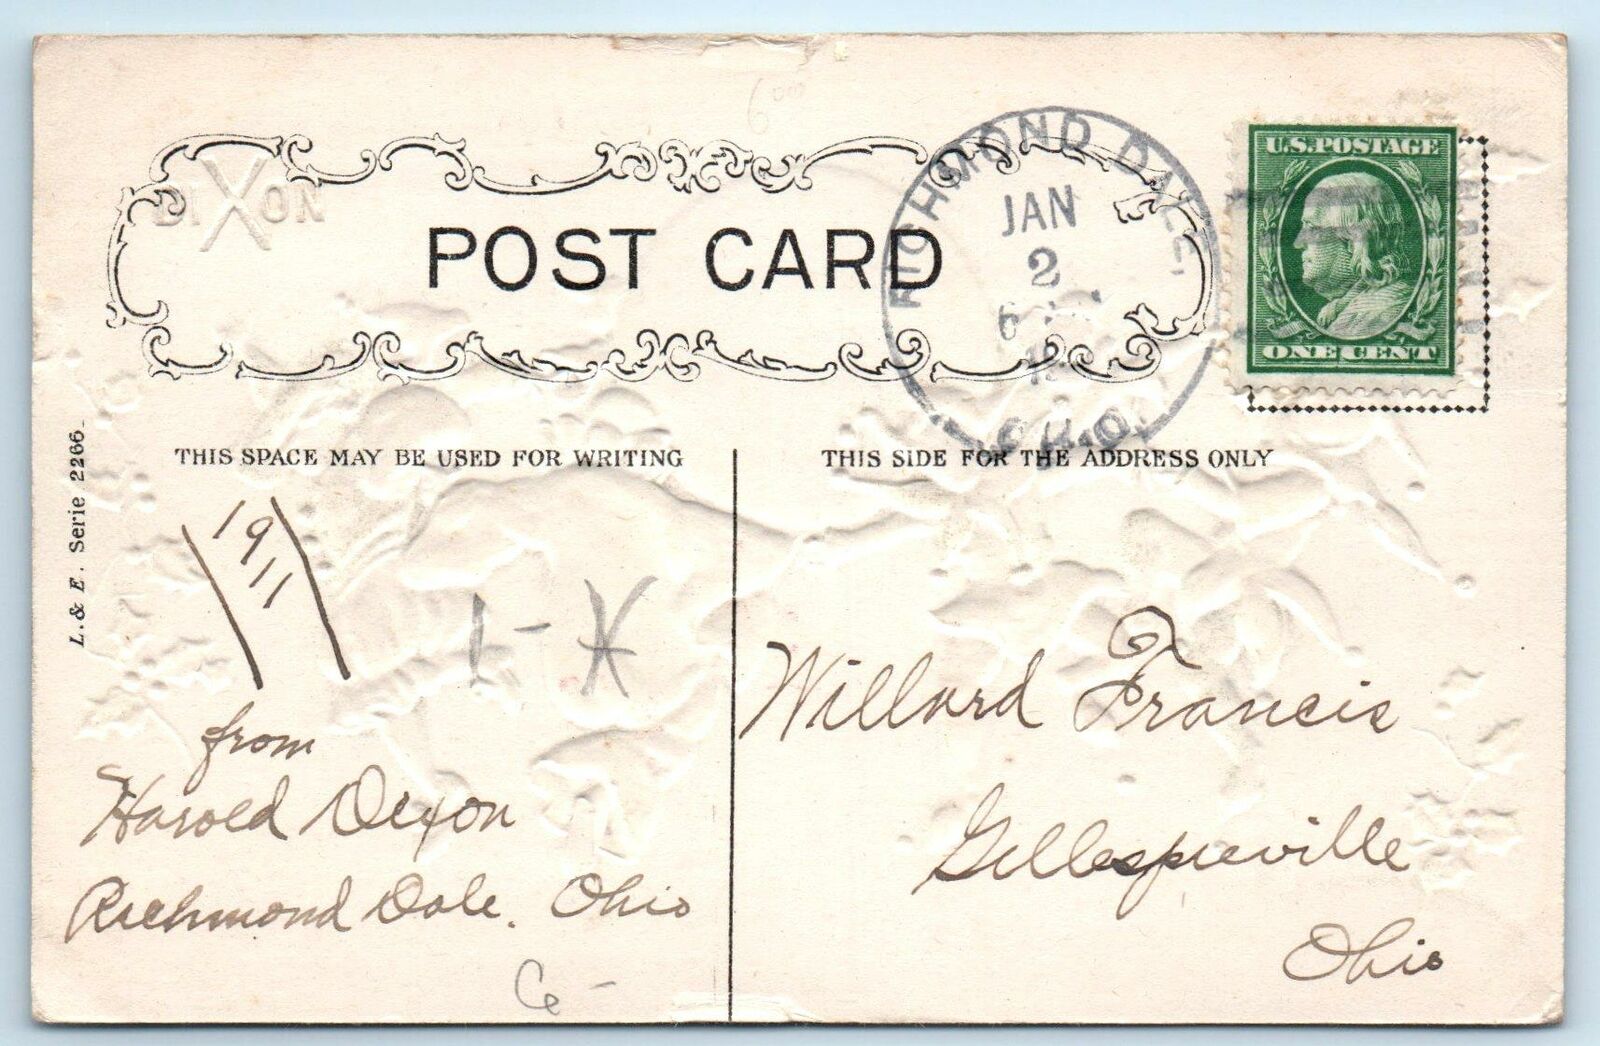 6.00
DIXON
POST CARD
RICHMOND DALE,
JAN
2
6
OHIO.
U.S.POSTAGE
ONE CENT
THIS SPACE MAY BE USED FOR WRITING
THIS SIDE FOR THE ADDRESS ONLY
L. & E. Serie 2266.
1911
1- H
from
Harold Dixon
Richmond Dale. Ohio
6-
Willard Francis
Gillespieville
Ohio